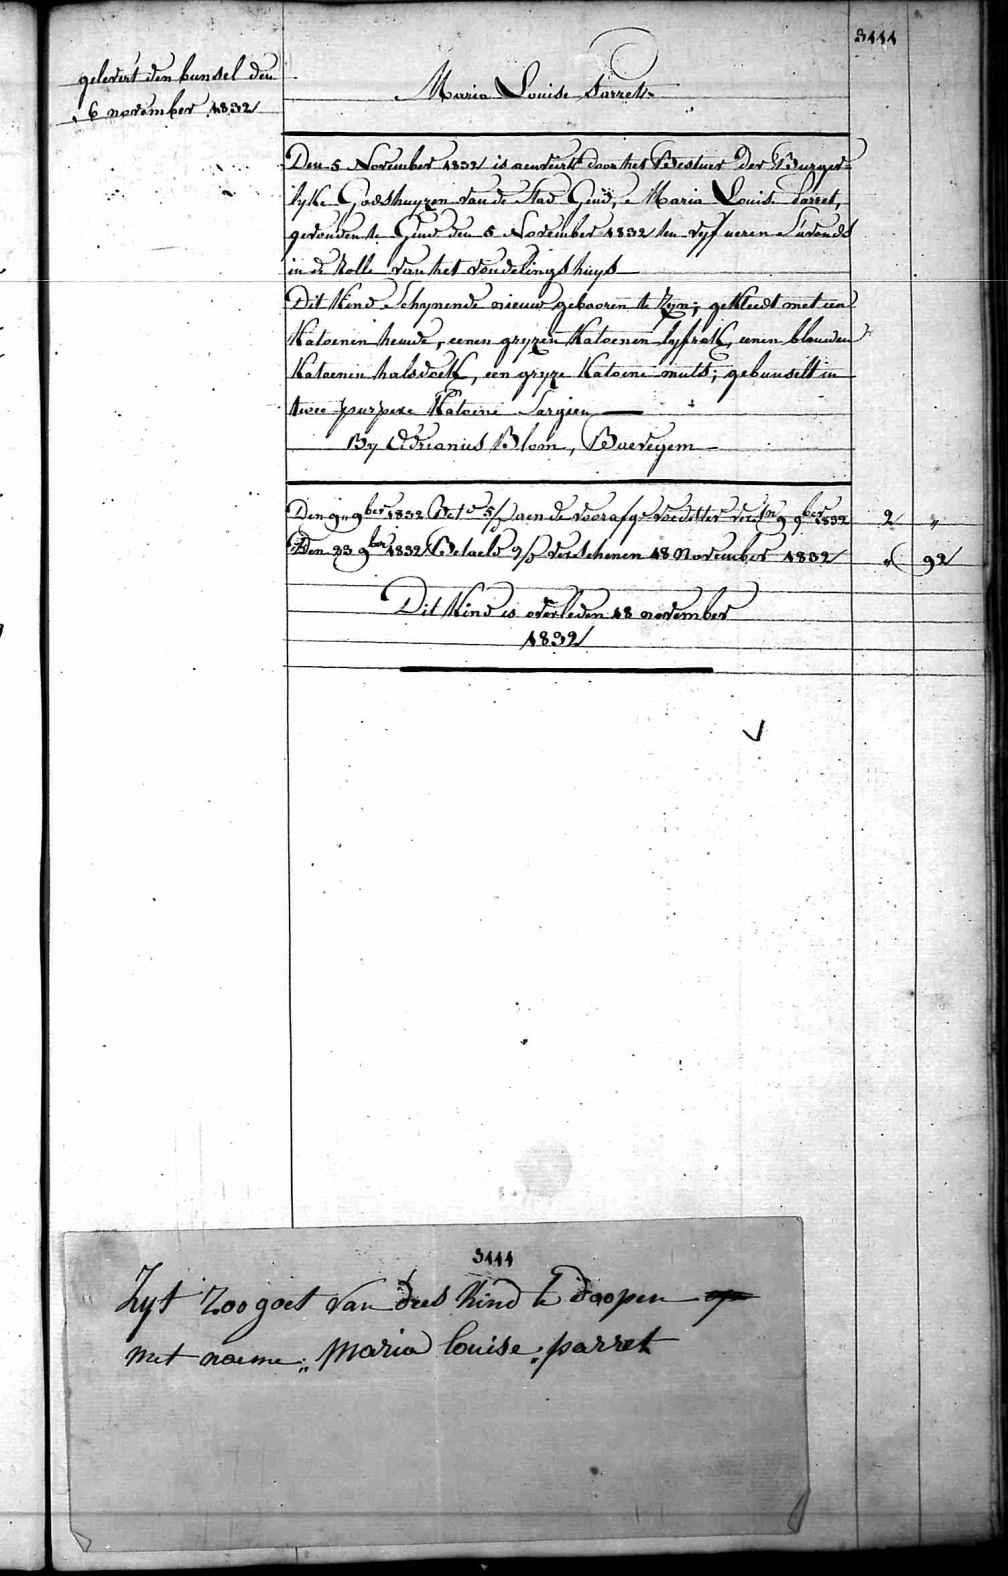 3111
gelevert den bunsel den
6 november 1832
Maria Louise Parret
Den 5 November 1832 is aenveird door het Bestuer Der Burger=
lyke Godshuyzen van de Stad Gend, Maria Louise Parret,
gevonden te Gend den 5 November 1832 ten vyf ueren S'avonds
in de Rolle van het vondelingshuys
Dit Kind Schynende nieuw gebooren te Zyn; gekleedt met een
Katoenen hemde, eenen gryzen Katoenen lyfrok, eenen blauwen
Katoenen halsdoek, een gryze Katoene muts; gebunselt in
twee purpere Katoene Sargien
By Adrianus Blom, Baevegem
Den 9 9ber 1832 Bet 5/ aen de voorafge voedster 9 9ber 1832 2 "
Den 23 9ber 1832 Betaeld verschenen 18 November 1832 " 92
Dit Kind is overleden 18 november
1832
3111
Zyt Zoo goet van dees Kind te doopen
met naeme: Maria louise: parret